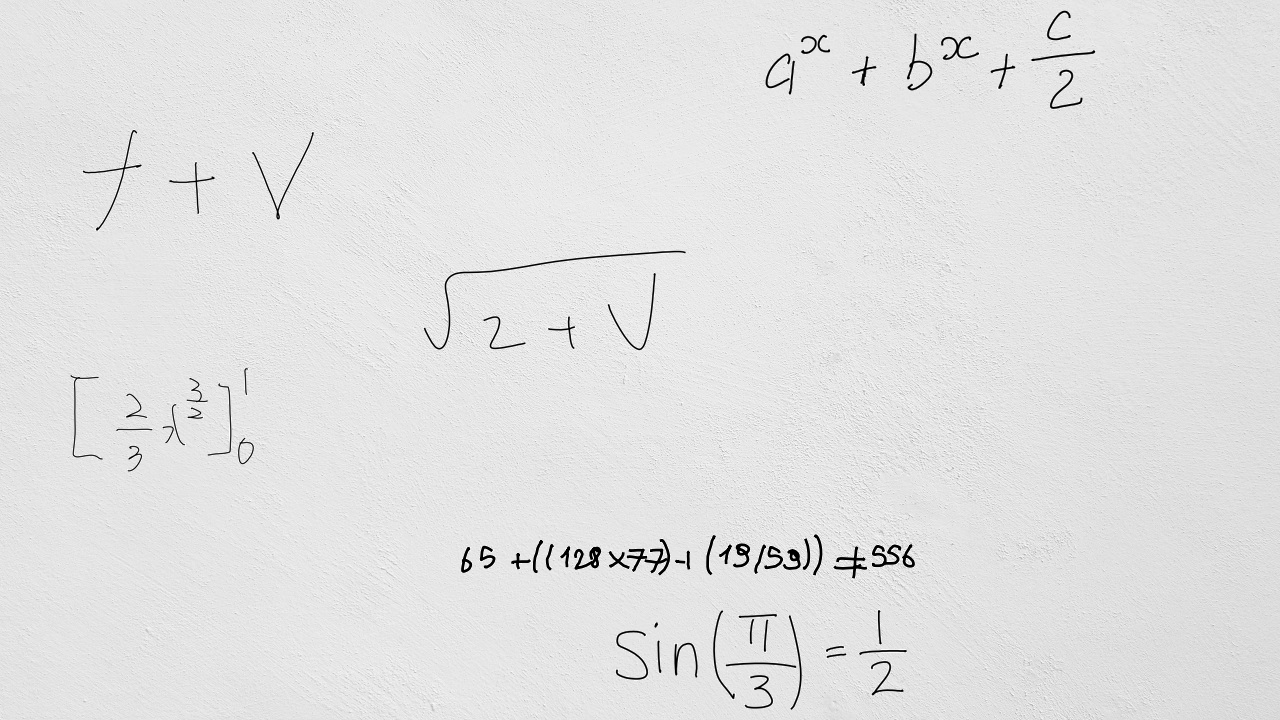 a^x + b^x + c/2
f + V
√(2 + V)
[2/3 x^(3/2)]_0^1
65 + ((128 × 77) + (19/59)) ≠ 556
sin(π/3) = 1/2